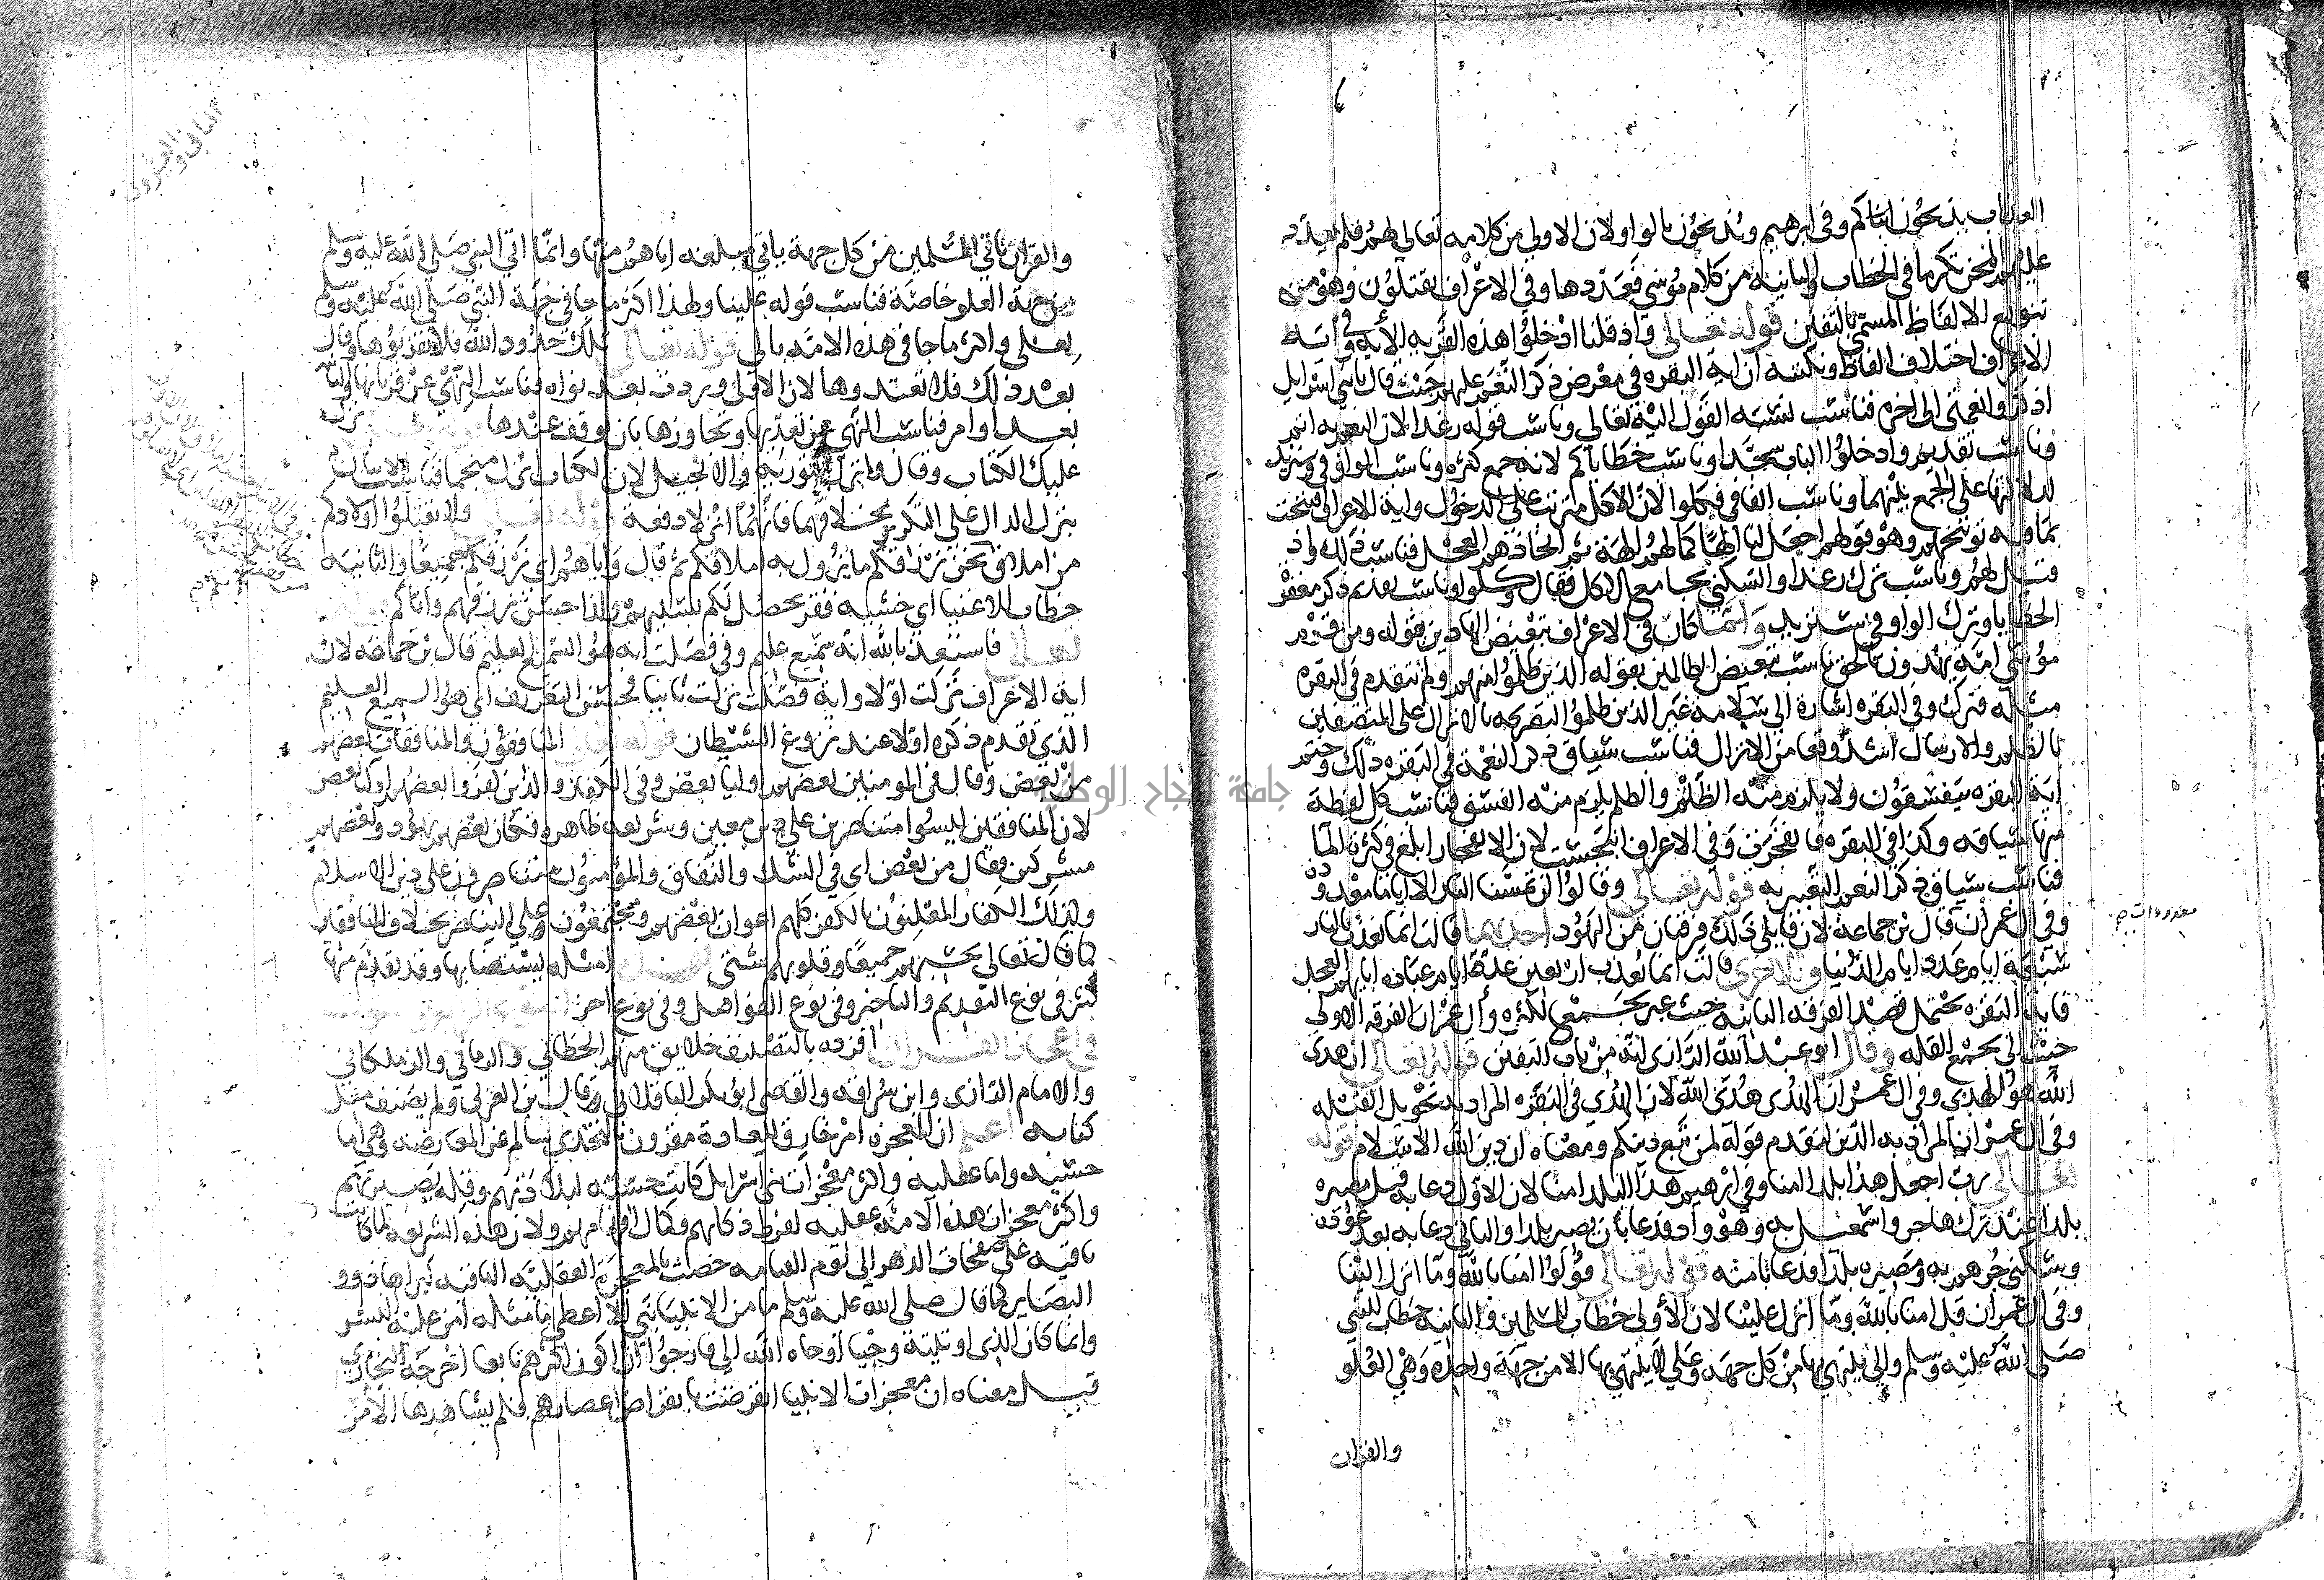 العذاب يذبحون ابناكم وفي ابرهيم ويذبحون بالواو لان الاولي من كلامه تعالي لهم فلم يعدد
عليهم المحن تكرما في الخطاب والثانية من كلام موسي فعددها وفي الاعراف يقتلون وهو من
تنويع الالفاظ المسمي بالتفنن قوله تعالي واذ قلنا ادخلوا هذه القرية الاية وفي اية
الاعراف اختلاف الفاظ ونكتته ان اية البقره في معرض ذكر النعم عليهم حيث قال يا بني اسرايل
اذكروا نعمتي الي اخره فناسب نسبة القول اليه تعالي وناسب قوله رغدا لان النعم به اتم
وناسب تقديم وادخلوا الباب سجدا وناسب خطاياكم لانه جمع كثرة وناسب الواو في وسنزيد
لدلالتها علي الجمع بينهما وناسب الفا في فكلوا لان الاكل مترتب علي الدخول واية الاعراف افتتحت
بما فيه توبيخهم وهو قولهم اجعل لنا الها كما لهم الهة ثم اتخاذهم العجل فناسب ذلك واذ
قيل لهم وناسب ترك رغدا والسكني تجامع الاكل فقال وكلوا وناسب تقديم ذكر مغفرة
الخطايا وترك الواو في سنزيد ولما كان في الاعراف تبعيض الهادين بقوله ومن قوم
موسي امة يهدون بالحق ناسب تبعيض الظالمين بقوله الذين ظلموا منهم ولم يتقدم في البقره
مثله فترك وفي البقره اشارة الي سلامة غير الذين ظلموا لتصريحه بالانزال علي المتصفين
بالظلم والارسال اشد وقعا من الانزال فناسب سياق ذكر النعمة في البقره ذلك وختم
اية البقره بيفسقون ولا يلزم منه الظلم والظلم يلزم منه الفسق فناسب كل لفظة
منها سياقه وكذا في البقره فانفجرت وفي الاعراف انبجست لان الانفجار ابلغ في كثرة الما
فناسب سياق ذكر النعم التعبير به قوله تعالي وقالوا لن تمسنا النار الا اياما معدودة
وفي ال عمران قال بن جماعة لان قايلي ذلك فرقتان من اليهود احداهما قالت انما نعذب بالنار
سبعة ايام عدد ايام الدنيا والاخري قالت انما نعذب اربعين عدة ايام عبادة ابايهم العجل
فاية البقره تحتمل قصد الفرقة الثانية حيث عبر بجمع الكثرة وال عمران الفرقة الاولي
حيث اتي بجمع القلة وقال ابو عبد الله الرازي انه من باب التفنن قوله تعالي ان هدي
الله هو الهدي وفي ال عمران ان الهدي هدي الله لان الهدي في البقره المراد به تحويل القبلة
وفي ال عمران المراد به الدين لتقدم قوله لمن تبع دينكم ومعناه ان دين الله الاسلام قوله
تعالي رب اجعل هذا بلدا امنا وفي ابرهيم هذا البلد امنا لان الاول دعا به قبل مصيره
بلدا عند ترك هاجر واسمعيل به وهو واد فدعا بان يصير بلدا والثاني دعا به بعد عوده
وسكني جرهم به ومصيره بلدا فدعا بامنه قوله تعالي قولوا امنا بالله وما انزل الينا
وفي ال عمران قل امنا بالله وما انزل علينا لان الاولي خطاب للمسلمين والثانية خطاب للنبي
صلى الله عليه وسلم والي ينتهي بها من كل جهة وعلي لا ينتهي بها الا من جهة واحدة وهي العلو
والقران
معدودات صح
الثاني والعشرون
والقران ياتي المسلمين من كل جهة ياتي مبلغه اياهم منها وانما اتي النبي صلى الله عليه وسلم
من جهة العلو خاصة فناسب قوله علينا ولهذا اكثر ما جا في جهة النبي صلى الله عليه وسلم
بعلى واكثر ما جا في هذه الامة بالي قوله تعالي تلك حدود الله فلا تقربوها وقال
بعد ذلك فلا تعتدوها لان الاولي وردت بعد نواه فناسب النهي عن قربانها والثانية
بعد اوامر فناسب النهي عن تعديها وتجاوزها بان وقف عندها نزل
عليك الكتاب وقال وانزل التورية والانجيل لان الكتاب نزل منجما فناسب الاتيان
بنزل الدال على التكرير بخلافهما فانهما انزلا دفعة قوله تعالي ولا تقتلوا اولادكم
من املاق نحن نرزقكم ما يزول به املاقكم ثم قال واياهم اي نرزقكم جميعا والثانية
خطاب للاغنيا اي خشية فقر يحصل لكم بسببهم ولذا حسن نرزقهم واياكم
تعالي فاستعذ بالله انه سميع عليم وفي فصلت انه هو السميع العليم قال بن جماعة لان
اية الاعراف نزلت اولا واية فصلت نزلت ثانيا فحسن التعريف اي هو السميع العليم
الذي تقدم ذكره اولا عند نزوغ الشيطان قوله تعالي المنافقون والمنافقات بعضهم
من بعض وقال في المومنين بعضهم اوليا بعض وفي الكفار والذين كفروا بعضهم اوليا بعض
لان المنافقين ليسوا متناصرين على دين معين وشريعة ظاهرة فكان بعضهم يهود وبعضهم
مشركين فقال من بعض اي في الشك والنفاق والمؤمنون متناصرون على دين الاسلام
وكذلك الكفار المعلنون بالكفر كلهم اعوان بعضهم ومجتمعون على التناصر بخلاف المنافقين
كما قال تعالي تحسبهم جميعا وقلوبهم شتى فهذه امثلة يستضا بها وقد تقدم منها
كثير في نوع التقديم والتاخير وفي نوع الفواصل وفي نوع اخر
في اعجاز القران افرده بالتصنيف خلايق منهم الخطابي والرماني والزملكاني
والامام الرازي وابن سراقة والقاضي ابو بكر الباقلاني وقال بن العربي ولم يصنف مثل
كتابه اعلم ان المعجزه امر خارق للعادة مقرون بالتحدي سالم عن المعارضه وهي اما
حسية واما عقلية واكثر معجزات بني اسرايل كانت حسية لبلادتهم وقلة بصيرتهم
واكثر معجزات هذه الامة عقلية لفرط ذكايهم وكمال افهامهم ولان هذه الشريعة لما كانت
باقية على صفحات الدهر الي يوم القيامه خصت بالمعجزة العقلية الباقية ليراها ذوو
البصاير كما قال صلى الله عليه وسلم ما من الانبيا نبي الا اعطي ما مثله امن عليه البشر
وانما كان الذي اوتيته وحيا اوحاه الله الي فارجوا ان اكون اكثرهم تابعا اخرجه البخاري
قيل معناه ان معجزات الانبيا انقرضت بانقراض اعصارهم فلم يشاهدها الا من
جامعة النجاح الوطنية